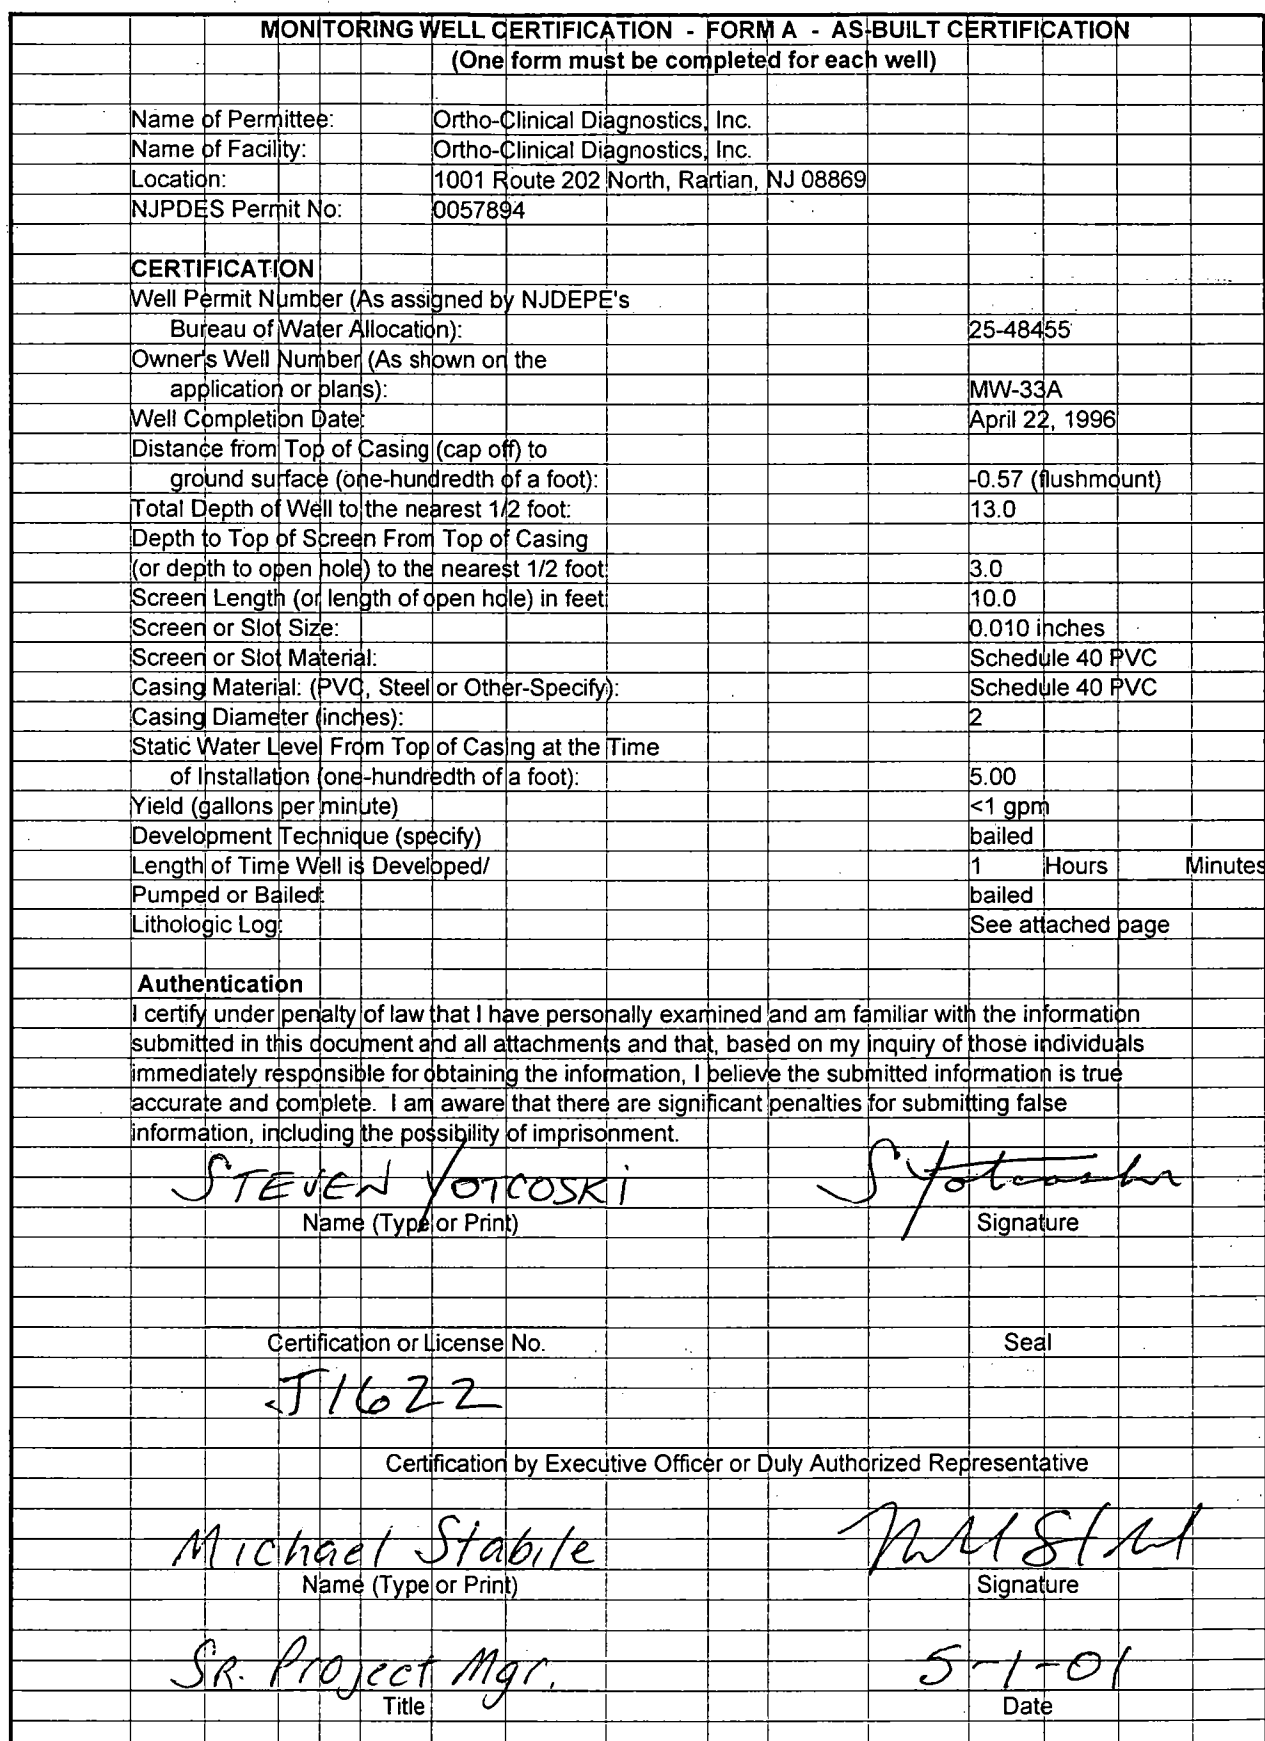 MONITORING WELL CERTIFICATION - FORM A - AS-BUILT CERTIFICATION
(One form must be completed for each well)
Name of Permittee: Ortho-Clinical Diagnostics, Inc.
Name of Facility: Ortho-Clinical Diagnostics, Inc.
Location: 1001 Route 202 North, Rartian, NJ 08869
NJPDES Permit No: 0057894
CERTIFICATION
Well Permit Number (As assigned by NJDEPE's
Bureau of Water Allocation): 25-48455
Owner's Well Number (As shown on the
application or plans): MW-33A
Well Completion Date: April 22, 1996
Distance from Top of Casing (cap off) to
ground surface (one-hundredth of a foot): -0.57 (flushmount)
Total Depth of Well to the nearest 1/2 foot: 13.0
Depth to Top of Screen From Top of Casing
(or depth to open hole) to the nearest 1/2 foot: 3.0
Screen Length (or length of open hole) in feet: 10.0
Screen or Slot Size: 0.010 inches
Screen or Slot Material: Schedule 40 PVC
Casing Material: (PVC, Steel or Other-Specify): Schedule 40 PVC
Casing Diameter (inches): 2
Static Water Level From Top of Casing at the Time
of Installation (one-hundredth of a foot): 5.00
Yield (gallons per minute) <1 gpm
Development Technique (specify) bailed
Length of Time Well is Developed/ 1 Hours Minutes
Pumped or Bailed: bailed
Lithologic Log: See attached page
Authentication
I certify under penalty of law that I have personally examined and am familiar with the information
submitted in this document and all attachments and that, based on my inquiry of those individuals
immediately responsible for obtaining the information, I believe the submitted information is true
accurate and complete. I am aware that there are significant penalties for submitting false
information, including the possibility of imprisonment.
STEVEN YOTCOSKI S Yotcoski
Name (Type or Print) Signature
Certification or License No. Seal
J1622
Certification by Executive Officer or Duly Authorized Representative
Michael Stabile
Name (Type or Print) Signature
SR. Project Mgr. 5-1-01
Title Date